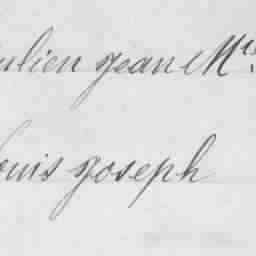 ulien jean M
ouis joseph